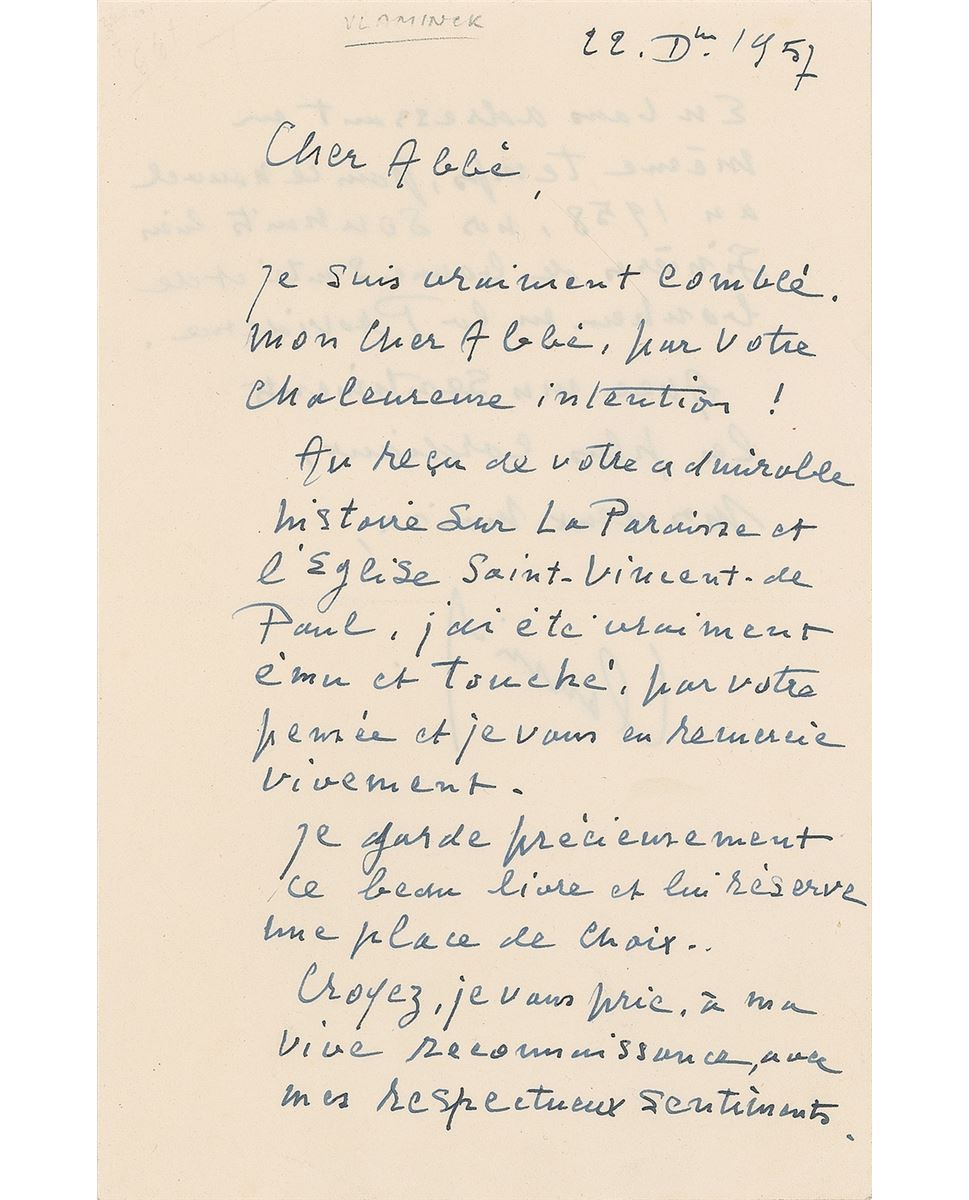 VLAMINCK
22. Dbre 1957
Cher Abbé,
Je suis vraiment Comblé.
mon Cher Abbé, par votre
Chaleureuse intention !
Au reçu de votre admirable
histoire Sur La Paroisse et
l'Eglise Saint-Vincent-de
Paul, j'ai été vraiment
ému et touché, par votre
pensée et je vous en remercie
vivement.
Je garde précieusement
ce beau livre et lui réserve
une place de Choix..
Croyez, je vous prie, à ma
vive reconnaissance, avec
mes respectueux sentiments.